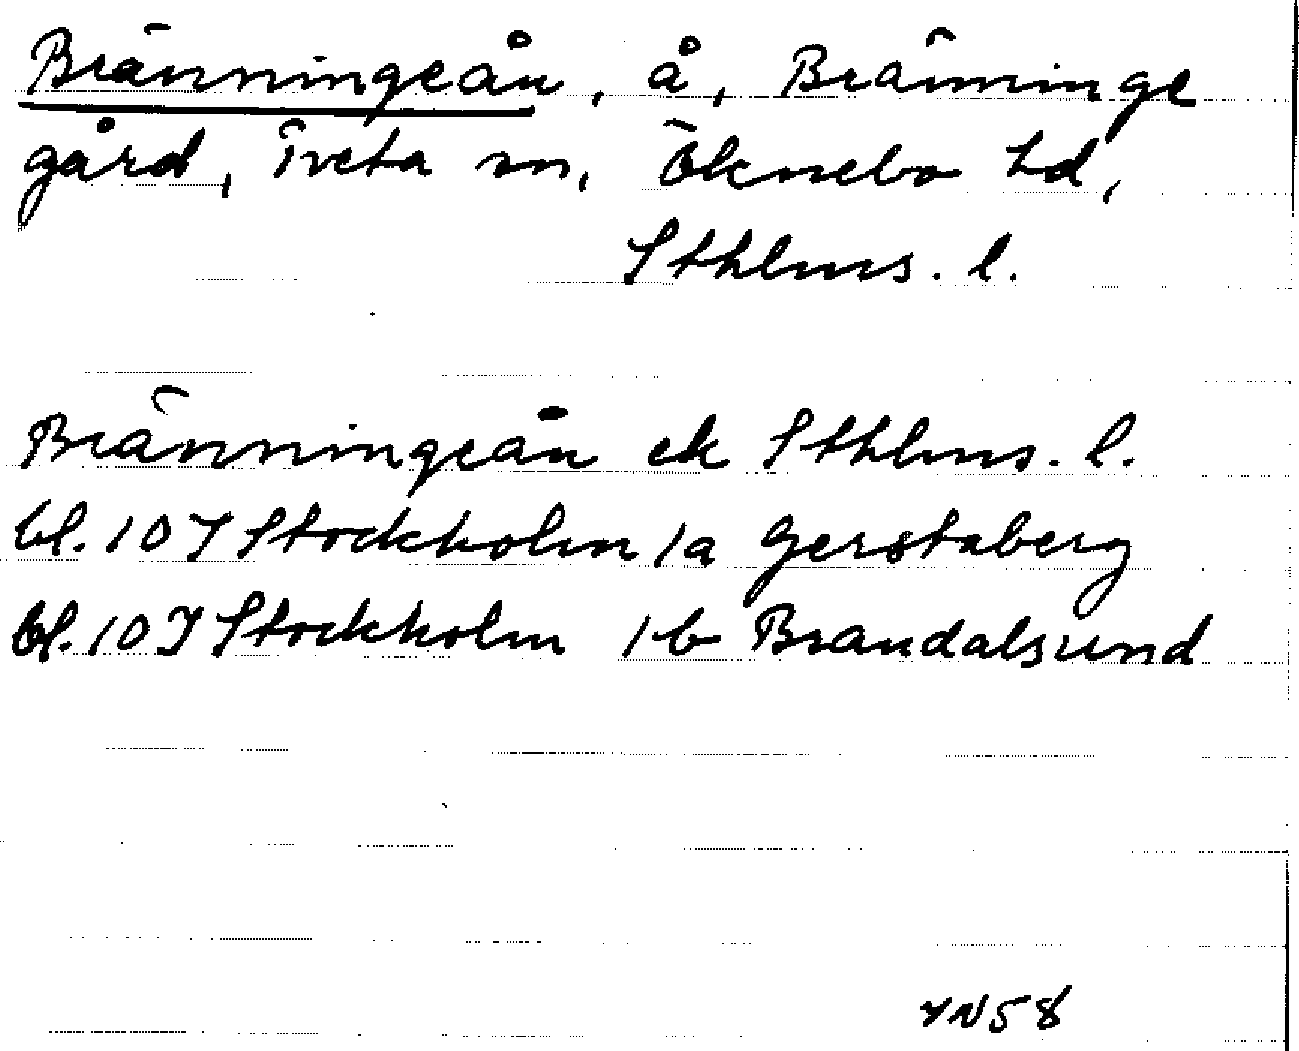 Bränningeån, å, Bränninge
gård, Tveta sn, Öknebo hd,
Sthlms. l.
Bränningeån ek Sthlms. l.
bl. 10 I Stockholm 1a Gerstaberg
bl. 10 I Stockholm 1b Brandalsund
YN58